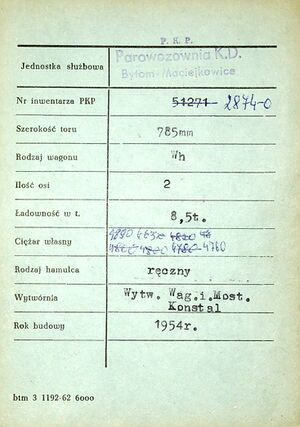 P. K. P.
Jednostka służbowa Parowozownia K.D.
Bytom-Maciejkowice
Nr inwentarza PKP 51271 2874-0
Szerokość toru 785mm
Rodzaj wagonu Wh
Ilość osi 2
Ładowność w t. 8,5t.
Ciężar własny 4890 4630 4820
4800 4800 4780 4760
Rodzaj hamulca ręczny
Wytwórnia Wytw. Wag.i.Most.
Konstal
Rok budowy 1954r.
btm 3 1192-62 6000